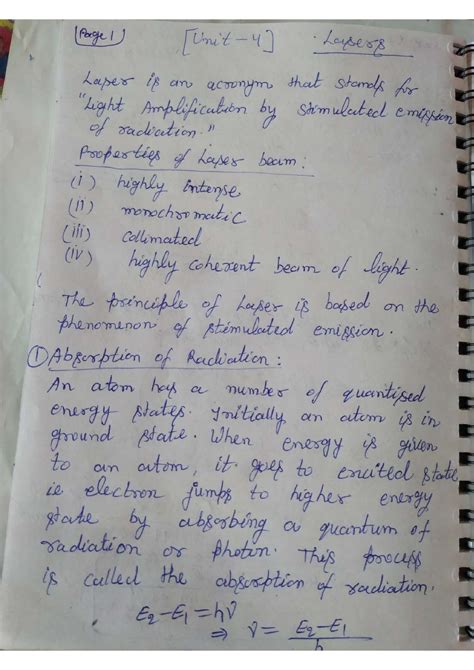 Page 1 [Unit-4] Lasers
Laser is an acronym that stands for
"Light Amplification by stimulated emission
of radiation."
Properties of Laser beam:
(i) highly intense
(ii) monochromatic
(iii) collimated
(iv) highly coherent beam of light.
The principle of Laser is based on the
phenomenon of stimulated emission.
① Absorption of Radiation:
An atom has a number of quantised
energy states. Initially an atom is in
ground state. When energy is given
to an atom, it goes to excited state
ie electron jumps to higher energy
state by absorbing a quantum of
radiation or photon. This process
is called the absorption of radiation.
E₂-E₁ = hν
⇒ ν = E₂-E₁
h